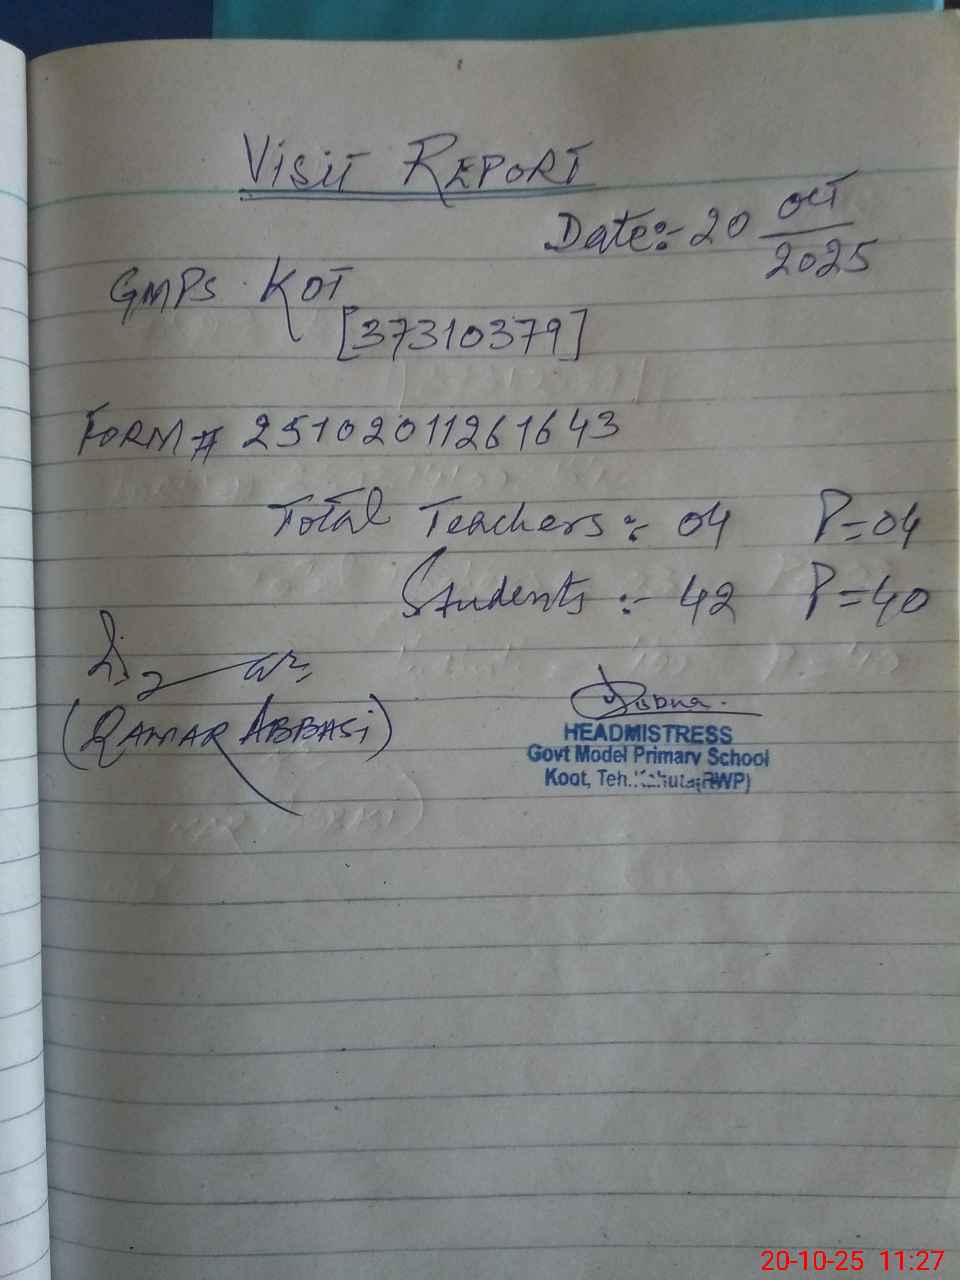 VISIT REPORT
Date:- 20 OCT
2025
GMPS KOT
[37310379]
FORM # 25102011261643
Total Teachers :- 04 P=04
Students :- 42 P=40
(QAMAR ABBASI)
HEADMISTRESS
Govt Model Primary School
Koot, Teh. Kahuta (RWP)
20-10-25 11:27